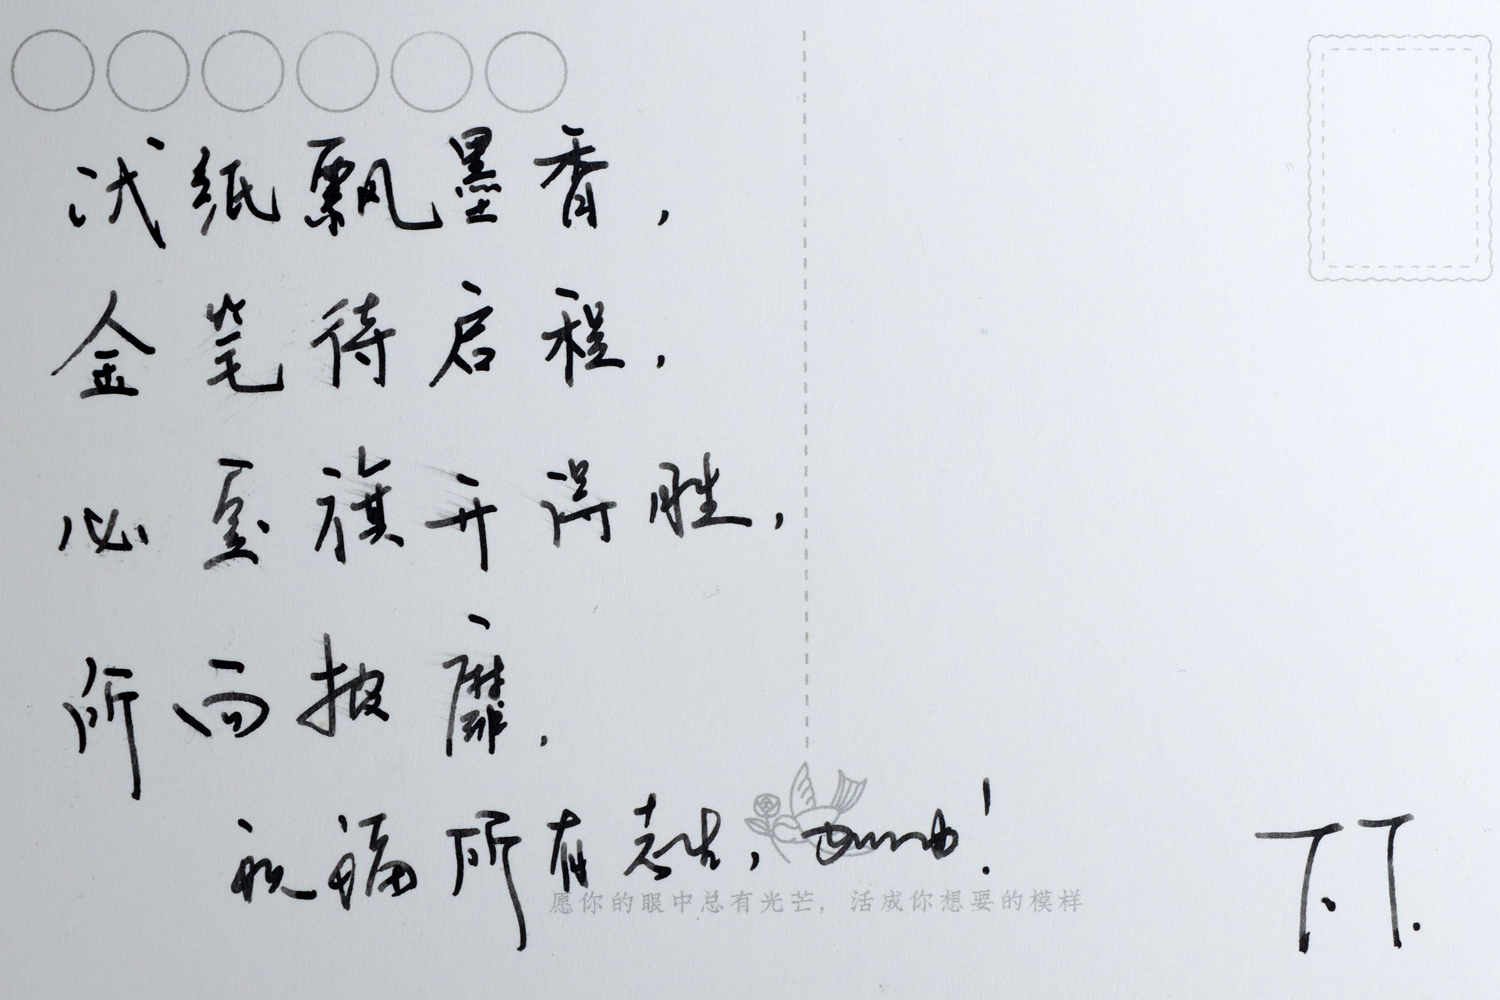 试纸飘墨香，
金笔待启程，
必旗开得胜，
所向披靡.
祝福所有！
愿你的眼中总有光芒，活成你想要的模样